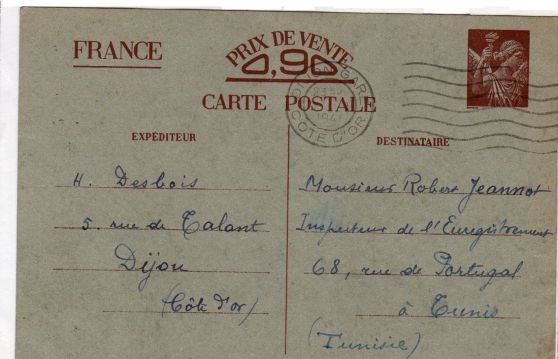 FRANCE
PRIX DE VENTE
0,90
CARTE POSTALE
DIJON GARE
1941
CÔTE D'OR
EXPÉDITEUR
DESTINATAIRE
H. Desbois
5. rue de Talant
Dijon
(Côte d'or)
Monsieur Robert Jeannot
Inspecteur de l'Enregistrement
68, rue de Portugal
à Tunis
(Tunisie)